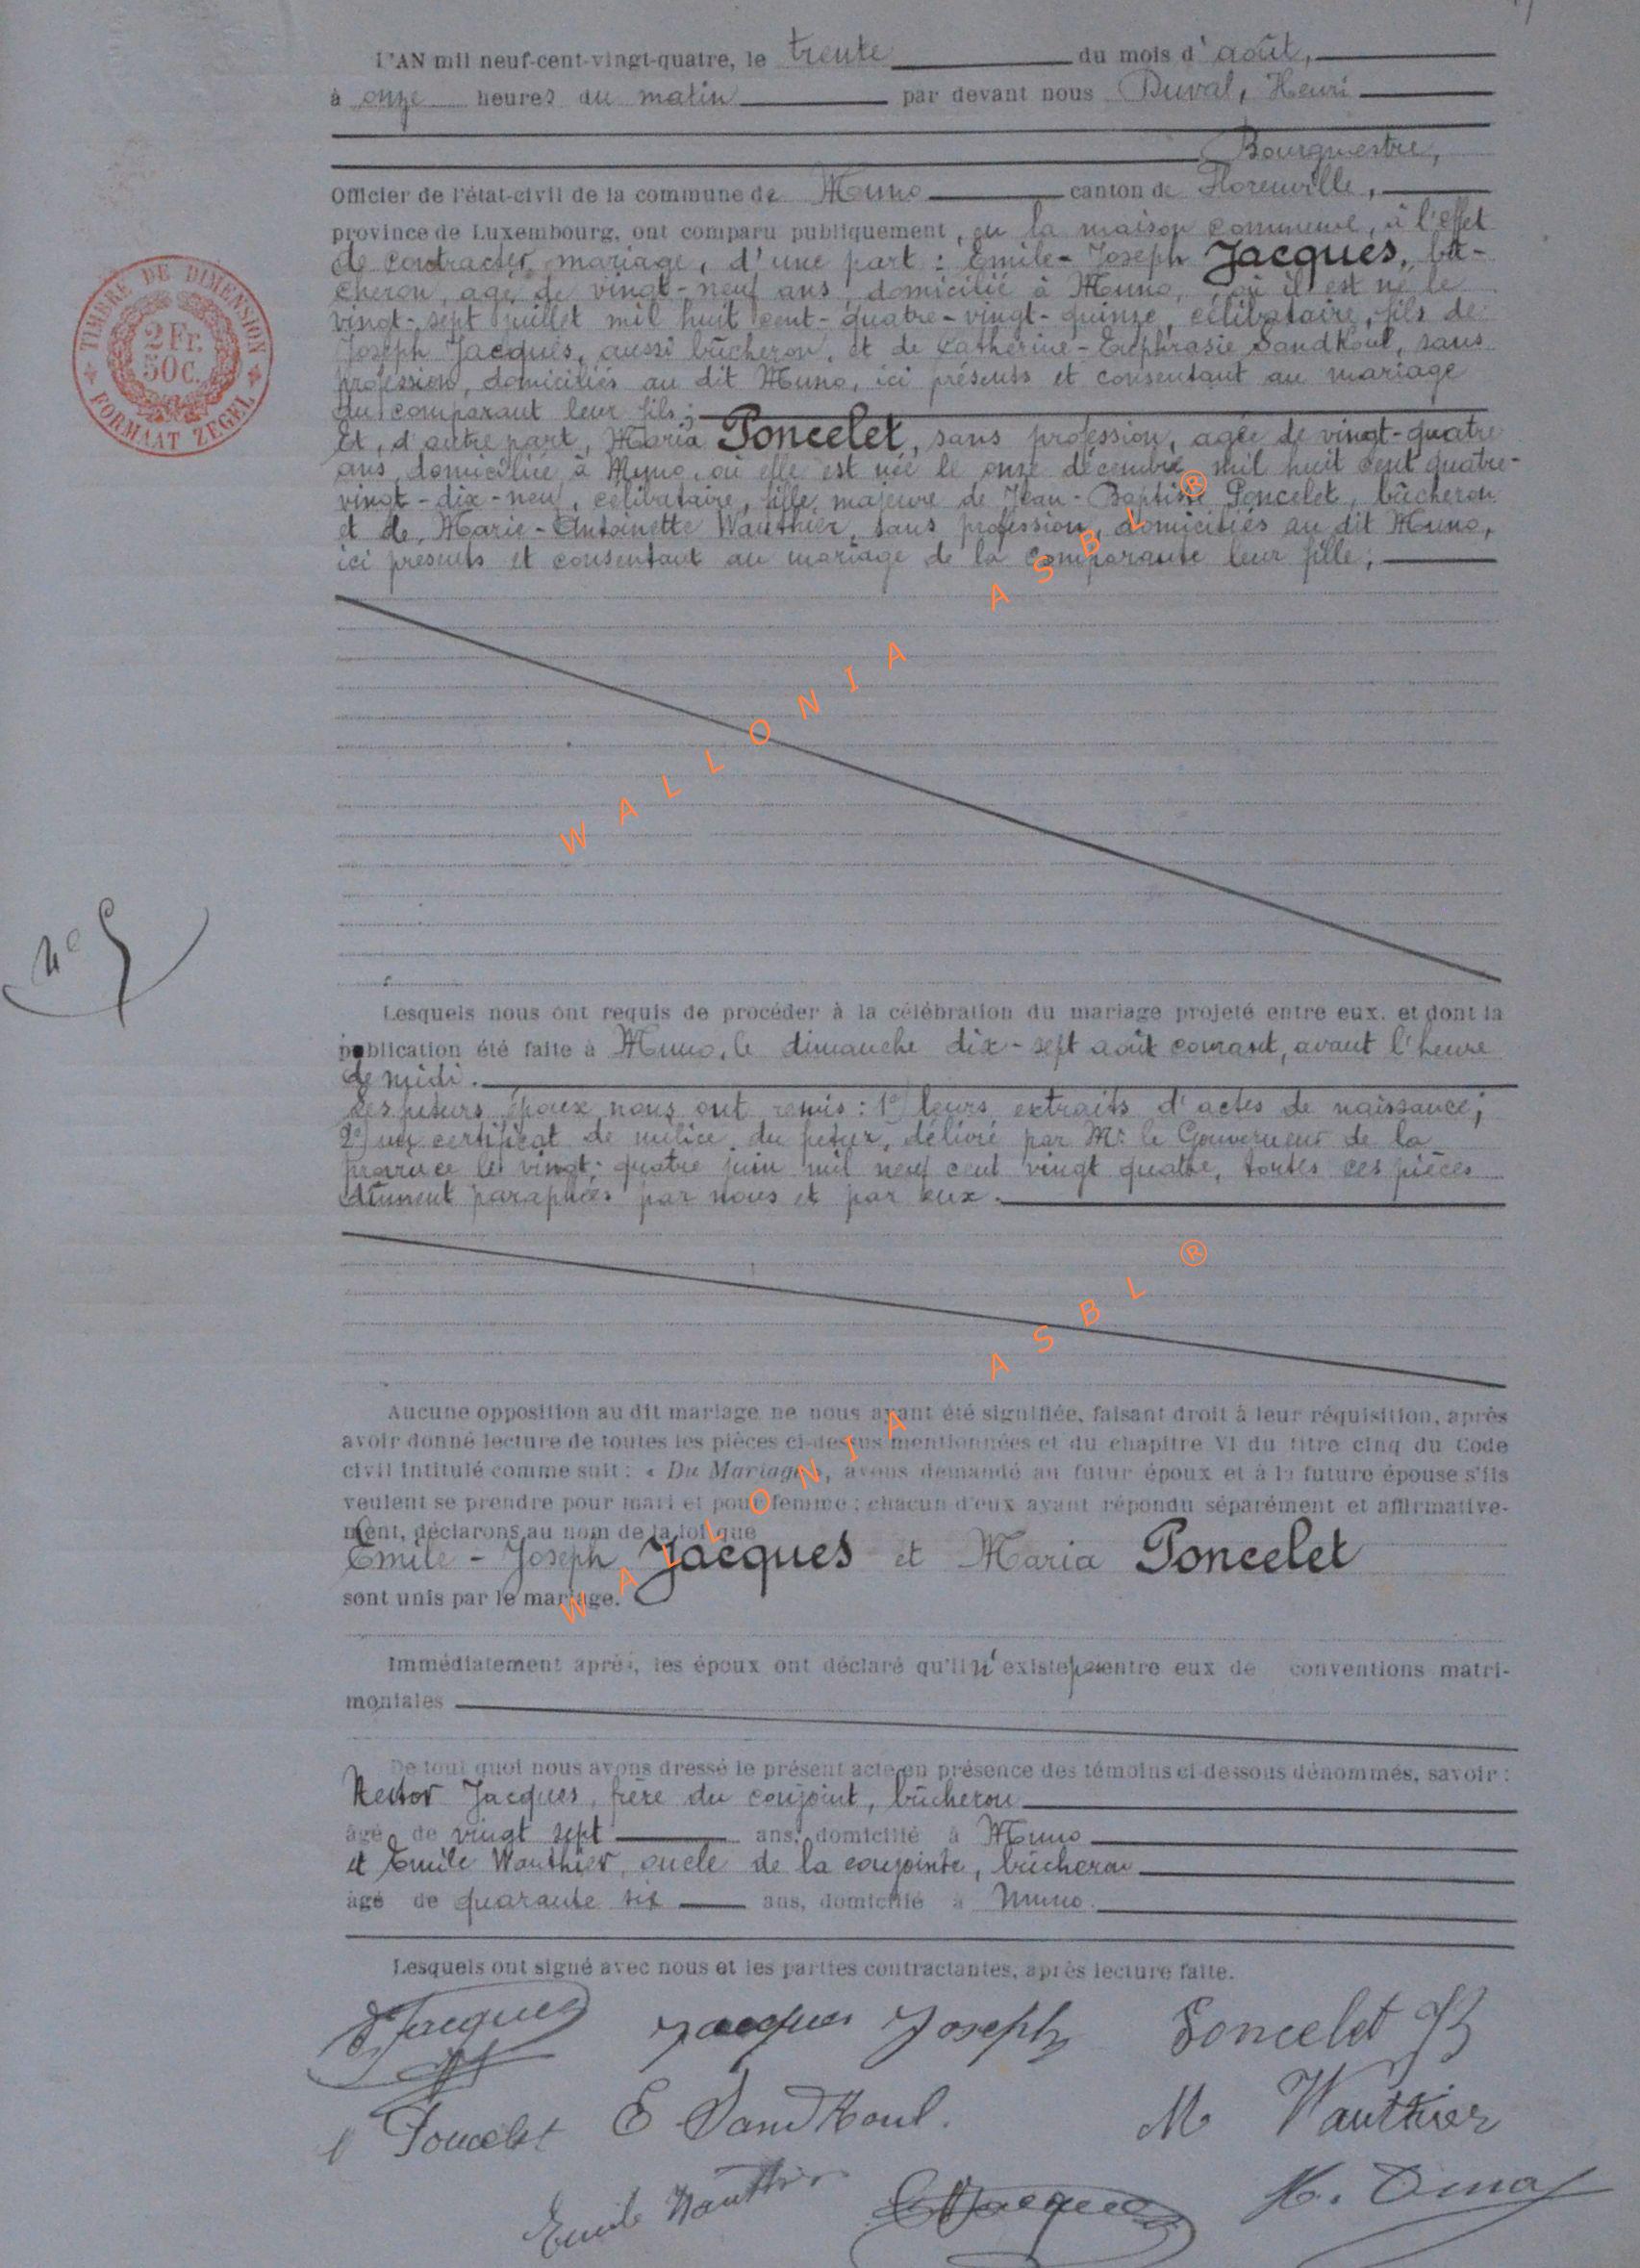 L'AN mil neuf-cent-vingt-quatre, le trente du mois d'août,
à onze heures du matin par devant nous Duval, Henri
Bourgmestre,
Officier de l'état-civil de la commune de Muno canton de Florenville,
province de Luxembourg, ont comparu publiquement, en la maison commune, à l'effet
de contracter mariage, d'une part : Emile-Joseph Jacques, bû-
cheron, agé de vingt-neuf ans, domicilié à Muno, où il est né le
vingt-sept juillet mil huit cent-quatre-vingt-quinze, célibataire, fils de
Joseph Jacques, aussi bûcheron, et de Catherine-Euphrasie Sandkoul, sans
profession, domiciliés au dit Muno, ici présents et consentant au mariage
du comparant leur fils ;
Et, d'autre part, Maria Poncelet, sans profession, agée de vingt-quatre
ans, domiciliée à Muno, où elle est née le onze décembre mil huit cent quatre-
vingt-dix-neuf, célibataire, fille majeure de Jean-Baptiste Poncelet, bûcheron
et de Marie-Antoinette Wauthier, sans profession, domiciliés au dit Muno,
ici présents et consentant au mariage de la comparante leur fille ;
TIMBRE DE DIMENSION
2 Fr.
50 c.
FORMAAT ZEGEL
WALLONIA ASBL ®
N° 5
Lesquels nous ont requis de procéder à la célébration du mariage projeté entre eux, et dont la
publication été faite à Muno, le dimanche dix-sept août courant, avant l'heure
de midi.
Les futurs époux nous ont remis : 1°) leurs extraits d'actes de naissance ;
2°) un certificat de milice du futur, délivré par Mr le Gouverneur de la
province le vingt-quatre juin mil neuf cent vingt quatre, toutes ces pièces
dûment paraphées par nous et par eux.
WALLONIA ASBL ®
Aucune opposition au dit mariage ne nous ayant été signifiée, faisant droit à leur réquisition, après
avoir donné lecture de toutes les pièces ci-dessus mentionnées et du chapitre VI du titre cinq du Code
civil intitulé comme suit : « Du Mariage », avons demandé au futur époux et à la future épouse s'ils
veulent se prendre pour mari et pour femme ; chacun d'eux ayant répondu séparément et affirmative-
ment, déclarons au nom de la loi que
Emile-Joseph Jacques et Maria Poncelet
sont unis par le mariage.
Immédiatement après, les époux ont déclaré qu'il n'existe pas entre eux de conventions matri-
moniales
De tout quoi nous avons dressé le présent acte en présence des témoins ci-dessous dénommés, savoir :
Hector Jacques, frère du conjoint, bûcheron
âgé de vingt sept ans, domicilié à Muno
et Emile Wauthier, oncle de la conjointe, bûcheron
âgé de quarante six ans, domicilié à Muno.
Lesquels ont signé avec nous et les parties contractantes, après lecture faite.
E Jacques Jacques Joseph Poncelet JB
Poncelet E Sandkoul. M Wauthier
Emile Wauthier Jacques H. Duval